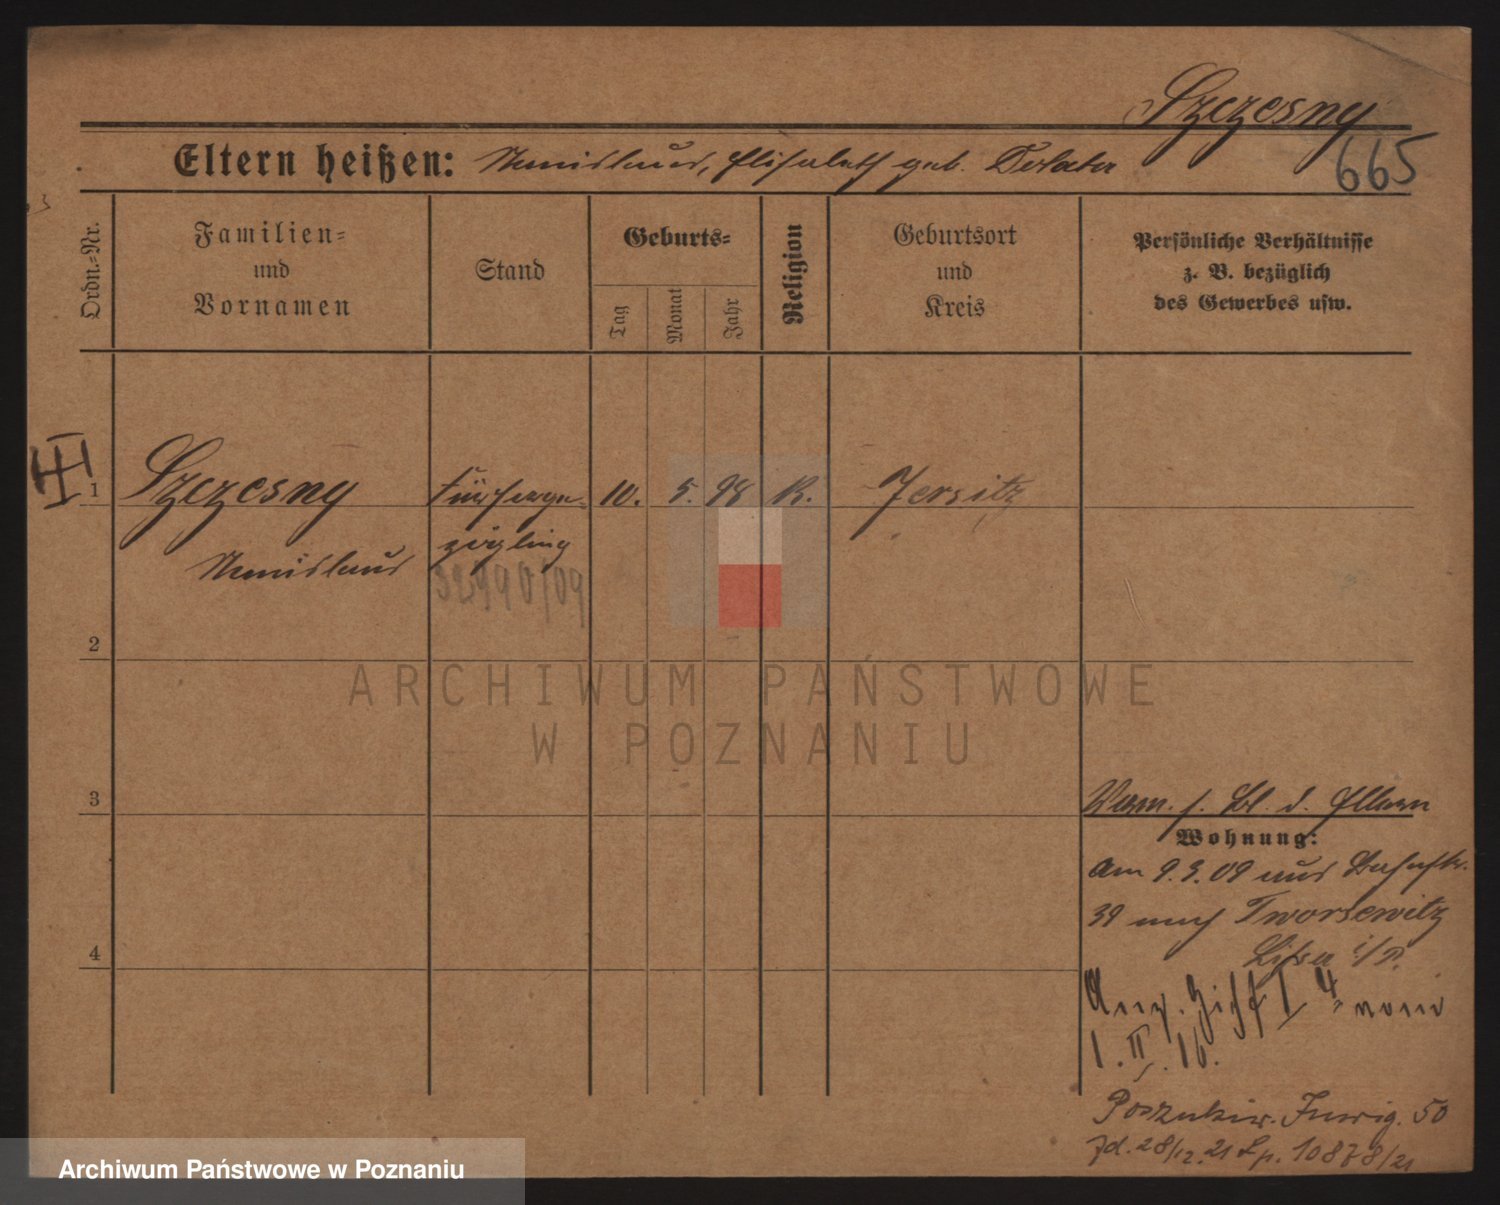 Szczesny
665
Eltern heißen: Stanislaus, Elisabeth geb.
Ordn.=Nr.
Familien=
und
Vornamen
Stand
Geburts=
Tag
Monat
Jahr
Religion
Geburtsort
und
Kreis
Persönliche Verhältnisse
z. B. bezüglich
des Gewerbes usw.
1
Szczesny Fürsorge= 10. 5. 98 K. Jersitz
Stanislaus zögling
32990/09
2
3
4
Verm. s. Bl. d. Eltern
Wohnung:
Am 9.3.09 aus
39 nach Tworsewitz
Lissa i/P.
I 4
1.II.16.
Poszukiw. 50
28/12.21 Lp. 10878/21
ARCHIWUM PAŃSTWOWE
W POZNANIU
Archiwum Państwowe w Poznaniu